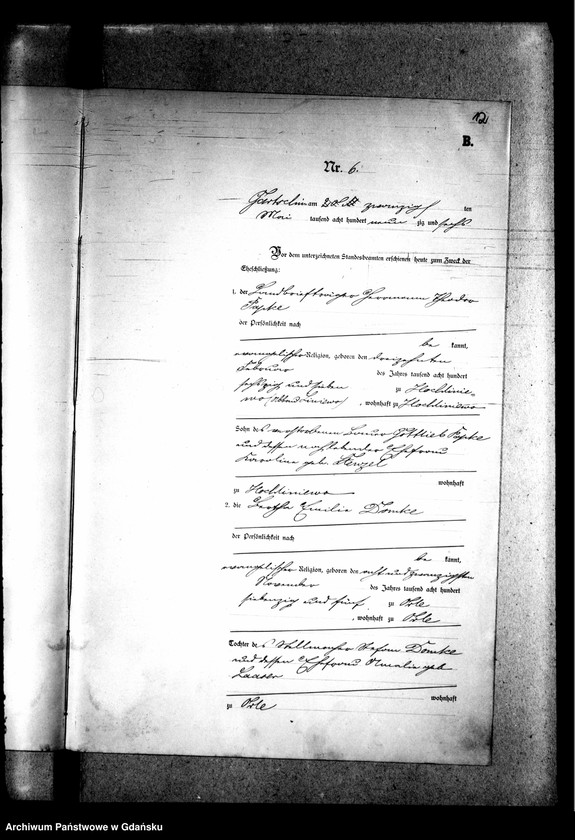 12
B.
Nr. 6.
am zwanzig ten
Mai tausend acht hundert neun zig und sechs
Vor dem unterzeichneten Standesbeamten erschienen heute zum Zweck der
Eheschließung:
1. der Landbriefträger Herrmann Theodor
Papke
der Persönlichkeit nach
be kannt,
evangelischer Religion, geboren den dreizehnten
Februar des Jahres tausend acht hundert
sechszig und sieben zu Hochliniewo
, wohnhaft zu Hochliniewo
Sohn des verstorbenen Bauer Gottlieb Papke
und dessen Ehefrau
Karoline geb. Henzel
wohnhaft
zu Hochliniewo
2. die Bertha Emilie Domke
der Persönlichkeit nach
be kannt,
evangelischer Religion, geboren den acht und zwanzigsten
November des Jahres tausend acht hundert
siebenzig und fünf zu Orle
, wohnhaft zu Orle
Tochter des Stellmacher Domke
und dessen Ehefrau Amalie geb.
Laaser
wohnhaft
zu Orle
Archiwum Państwowe w Gdańsku